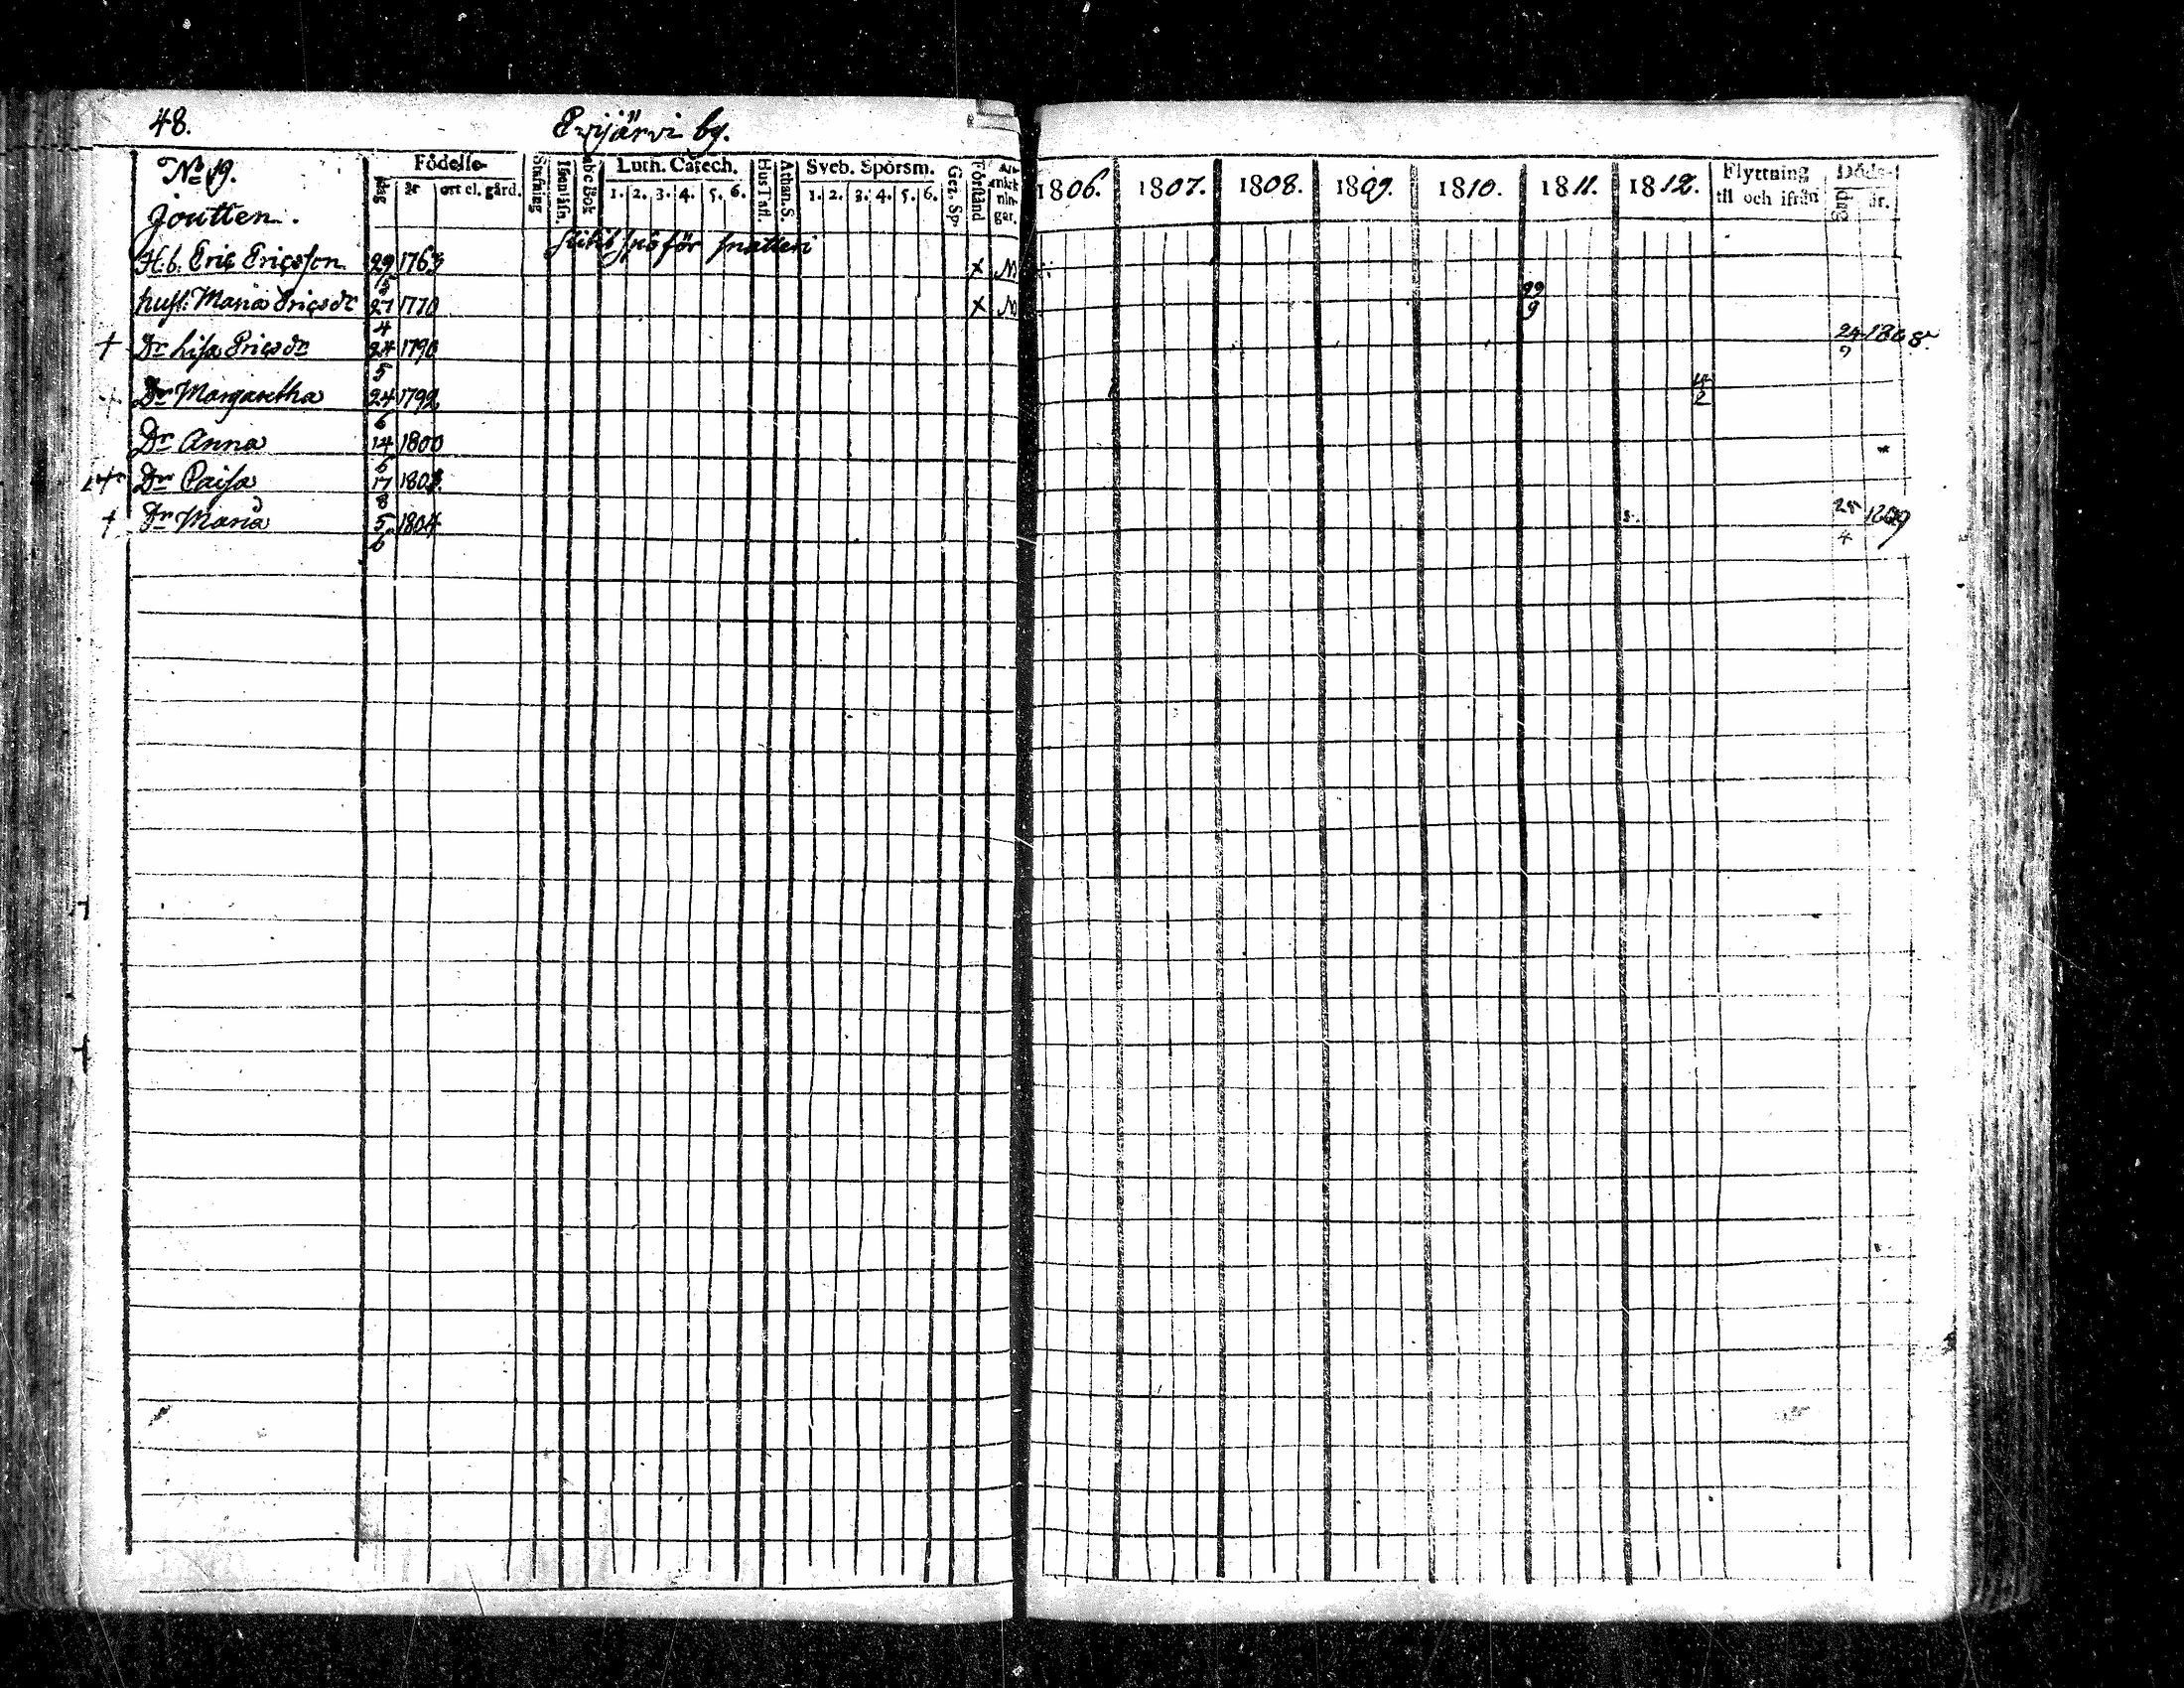 48.
Evijärvi by.
No 19.
Joutten.
Födelse-
dag
år
ort el. gård.
Stafning
abc Bok
Luth. Catech.
1. 2. 3. 4. 5. 6.
Hus Tafl.
Athan. S.
Sveb. Spörsm.
1. 2. 3. 4. 5. 6.
Gez. Sp
Förstånd
1806. 1807. 1808. 1809. 1810. 1811. 1812.
Flyttning
till och ifrån
Döds-
dag
år.
för snatteri
H.b. Eric Ericsson 29 1763 x
hust: Maria Ericsdr 27/4 1770 x 29/9
† Dr Lisa Ericsdr 24/5 1790 24/9 1808
Dr Margaretha 24/6 1792
Dr Anna 14 1800
Dr Caisa 17/8
† Dr Maria 5/6 1804 25/4 1809